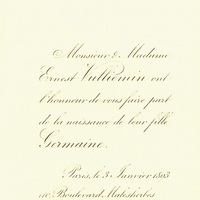 Monsieur & Madame
Ernest Vulliemin ont
l'honneur de vous faire part
de la naissance de leur fille
Germaine.
Paris, le 3 Janvier
Boulevard Malesherbes